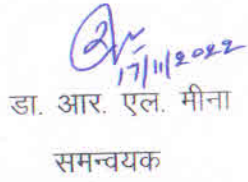 17/11/2022
डा. आर. एल. मीना
समन्वयक